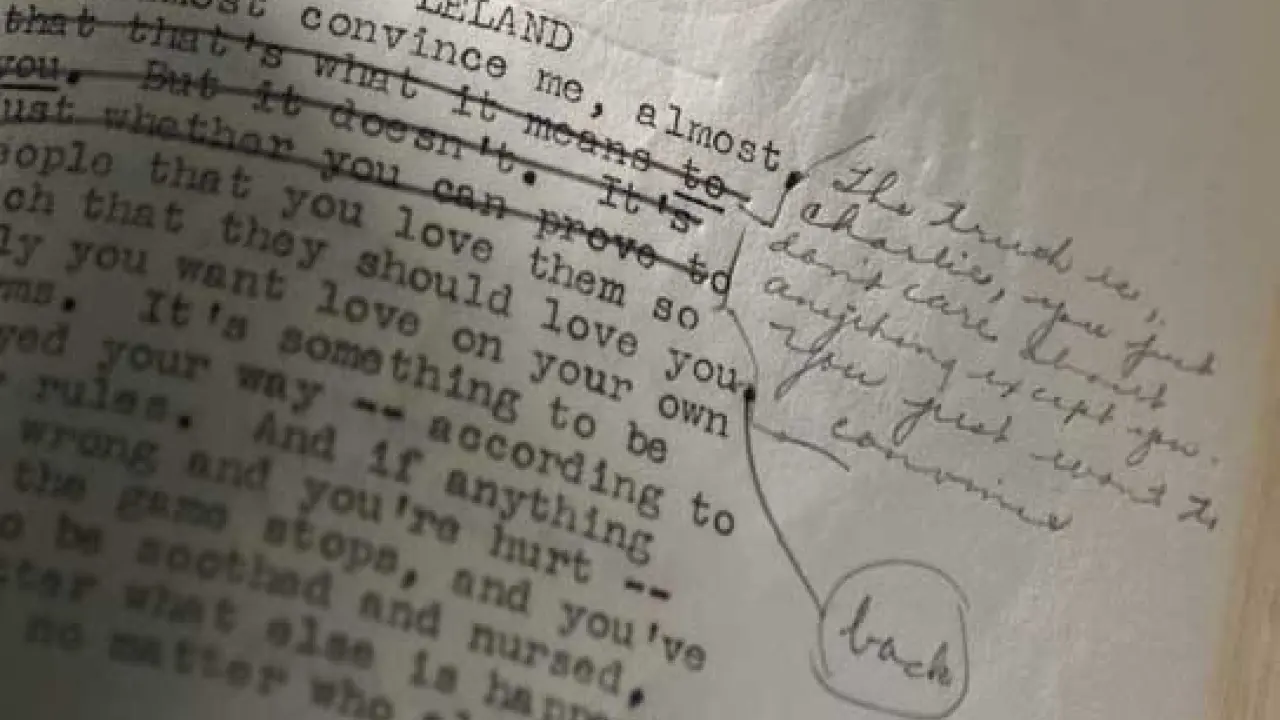 LELAND
most convince me, almost
that that's what it means to
you. But it doesn't. It's
just whether you can prove to
people that you love them so
ch that they should love you
ly you want love on your own
ms. It's something to be
yed your way -- according to
r rules. And if anything
wrong and you're hurt --
the game stops, and you've
o be soothed and nursed,
tter what else is happ
no matter who
The truth is,
Charlie, you just
don't care about
anything except you.
You just want to
convince
back